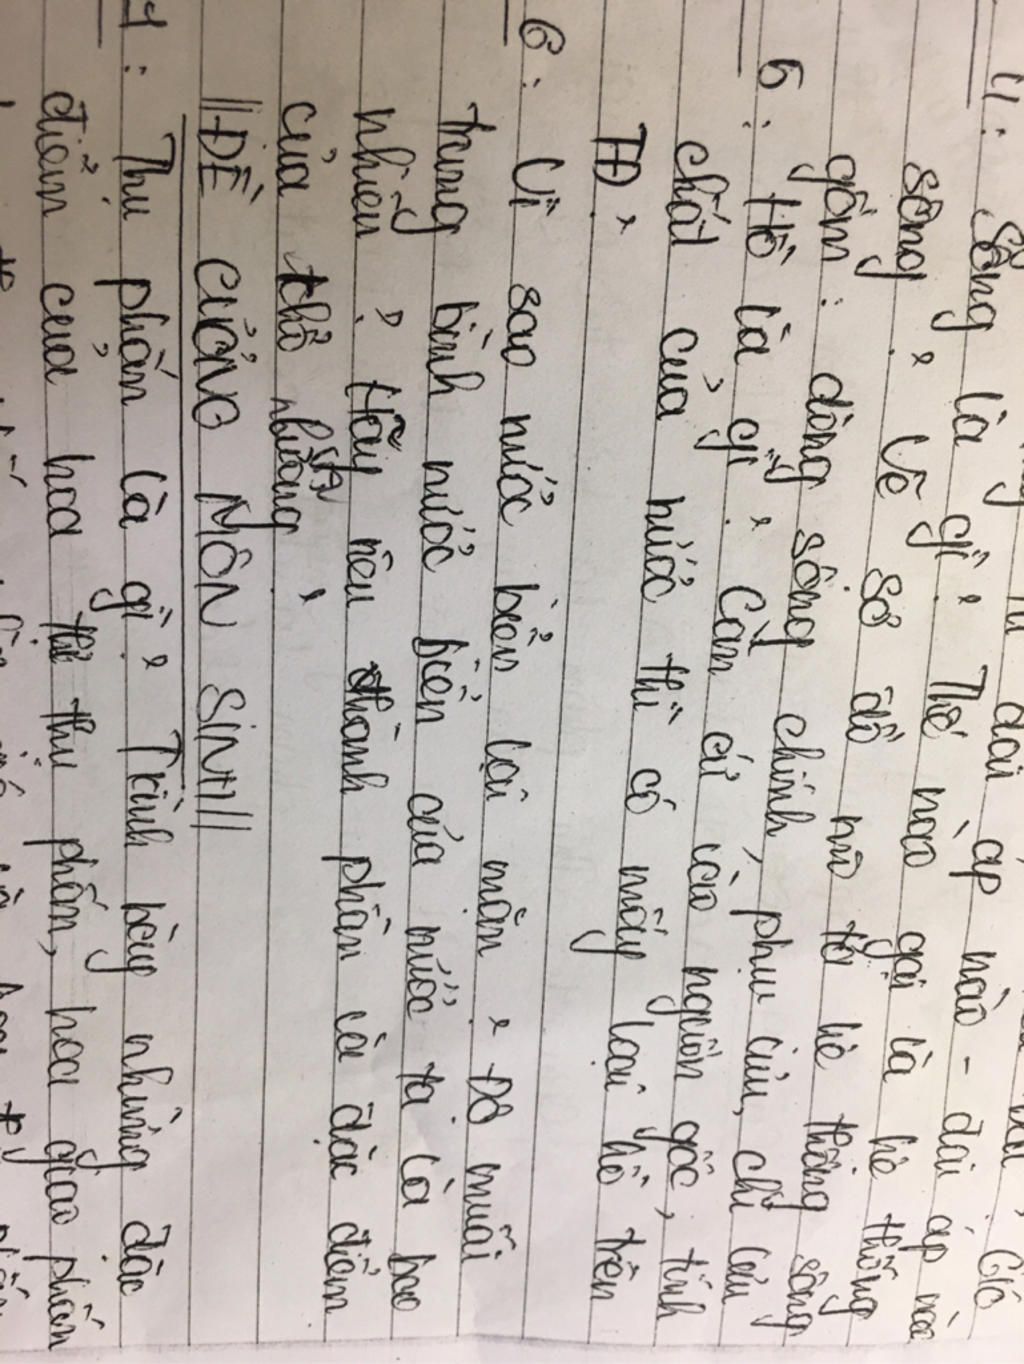 đai áp nào - đai áp nào
4: Sông là gì? Thế nào gọi là hệ thống
sông? Vẽ sơ đồ mô tả hệ thống sông
gồm: dòng sông chính, phụ lưu, chi lưu
5: Hồ là gì? Căn cứ vào nguồn gốc, tính
chất của nước thì có mấy loại hồ trên
TĐ?
6: Vì sao nước biển lại mặn? Độ muối
trung bình nước biển của nước ta là bao
nhiêu? Hãy nêu thành phần và đặc điểm
của thổ nhưỡng?
||ĐỀ CƯƠNG MÔN SINH||
1: Thụ phấn là gì? Trình bày những đặc
điểm của hoa thụ phấn, hoa giao phấn